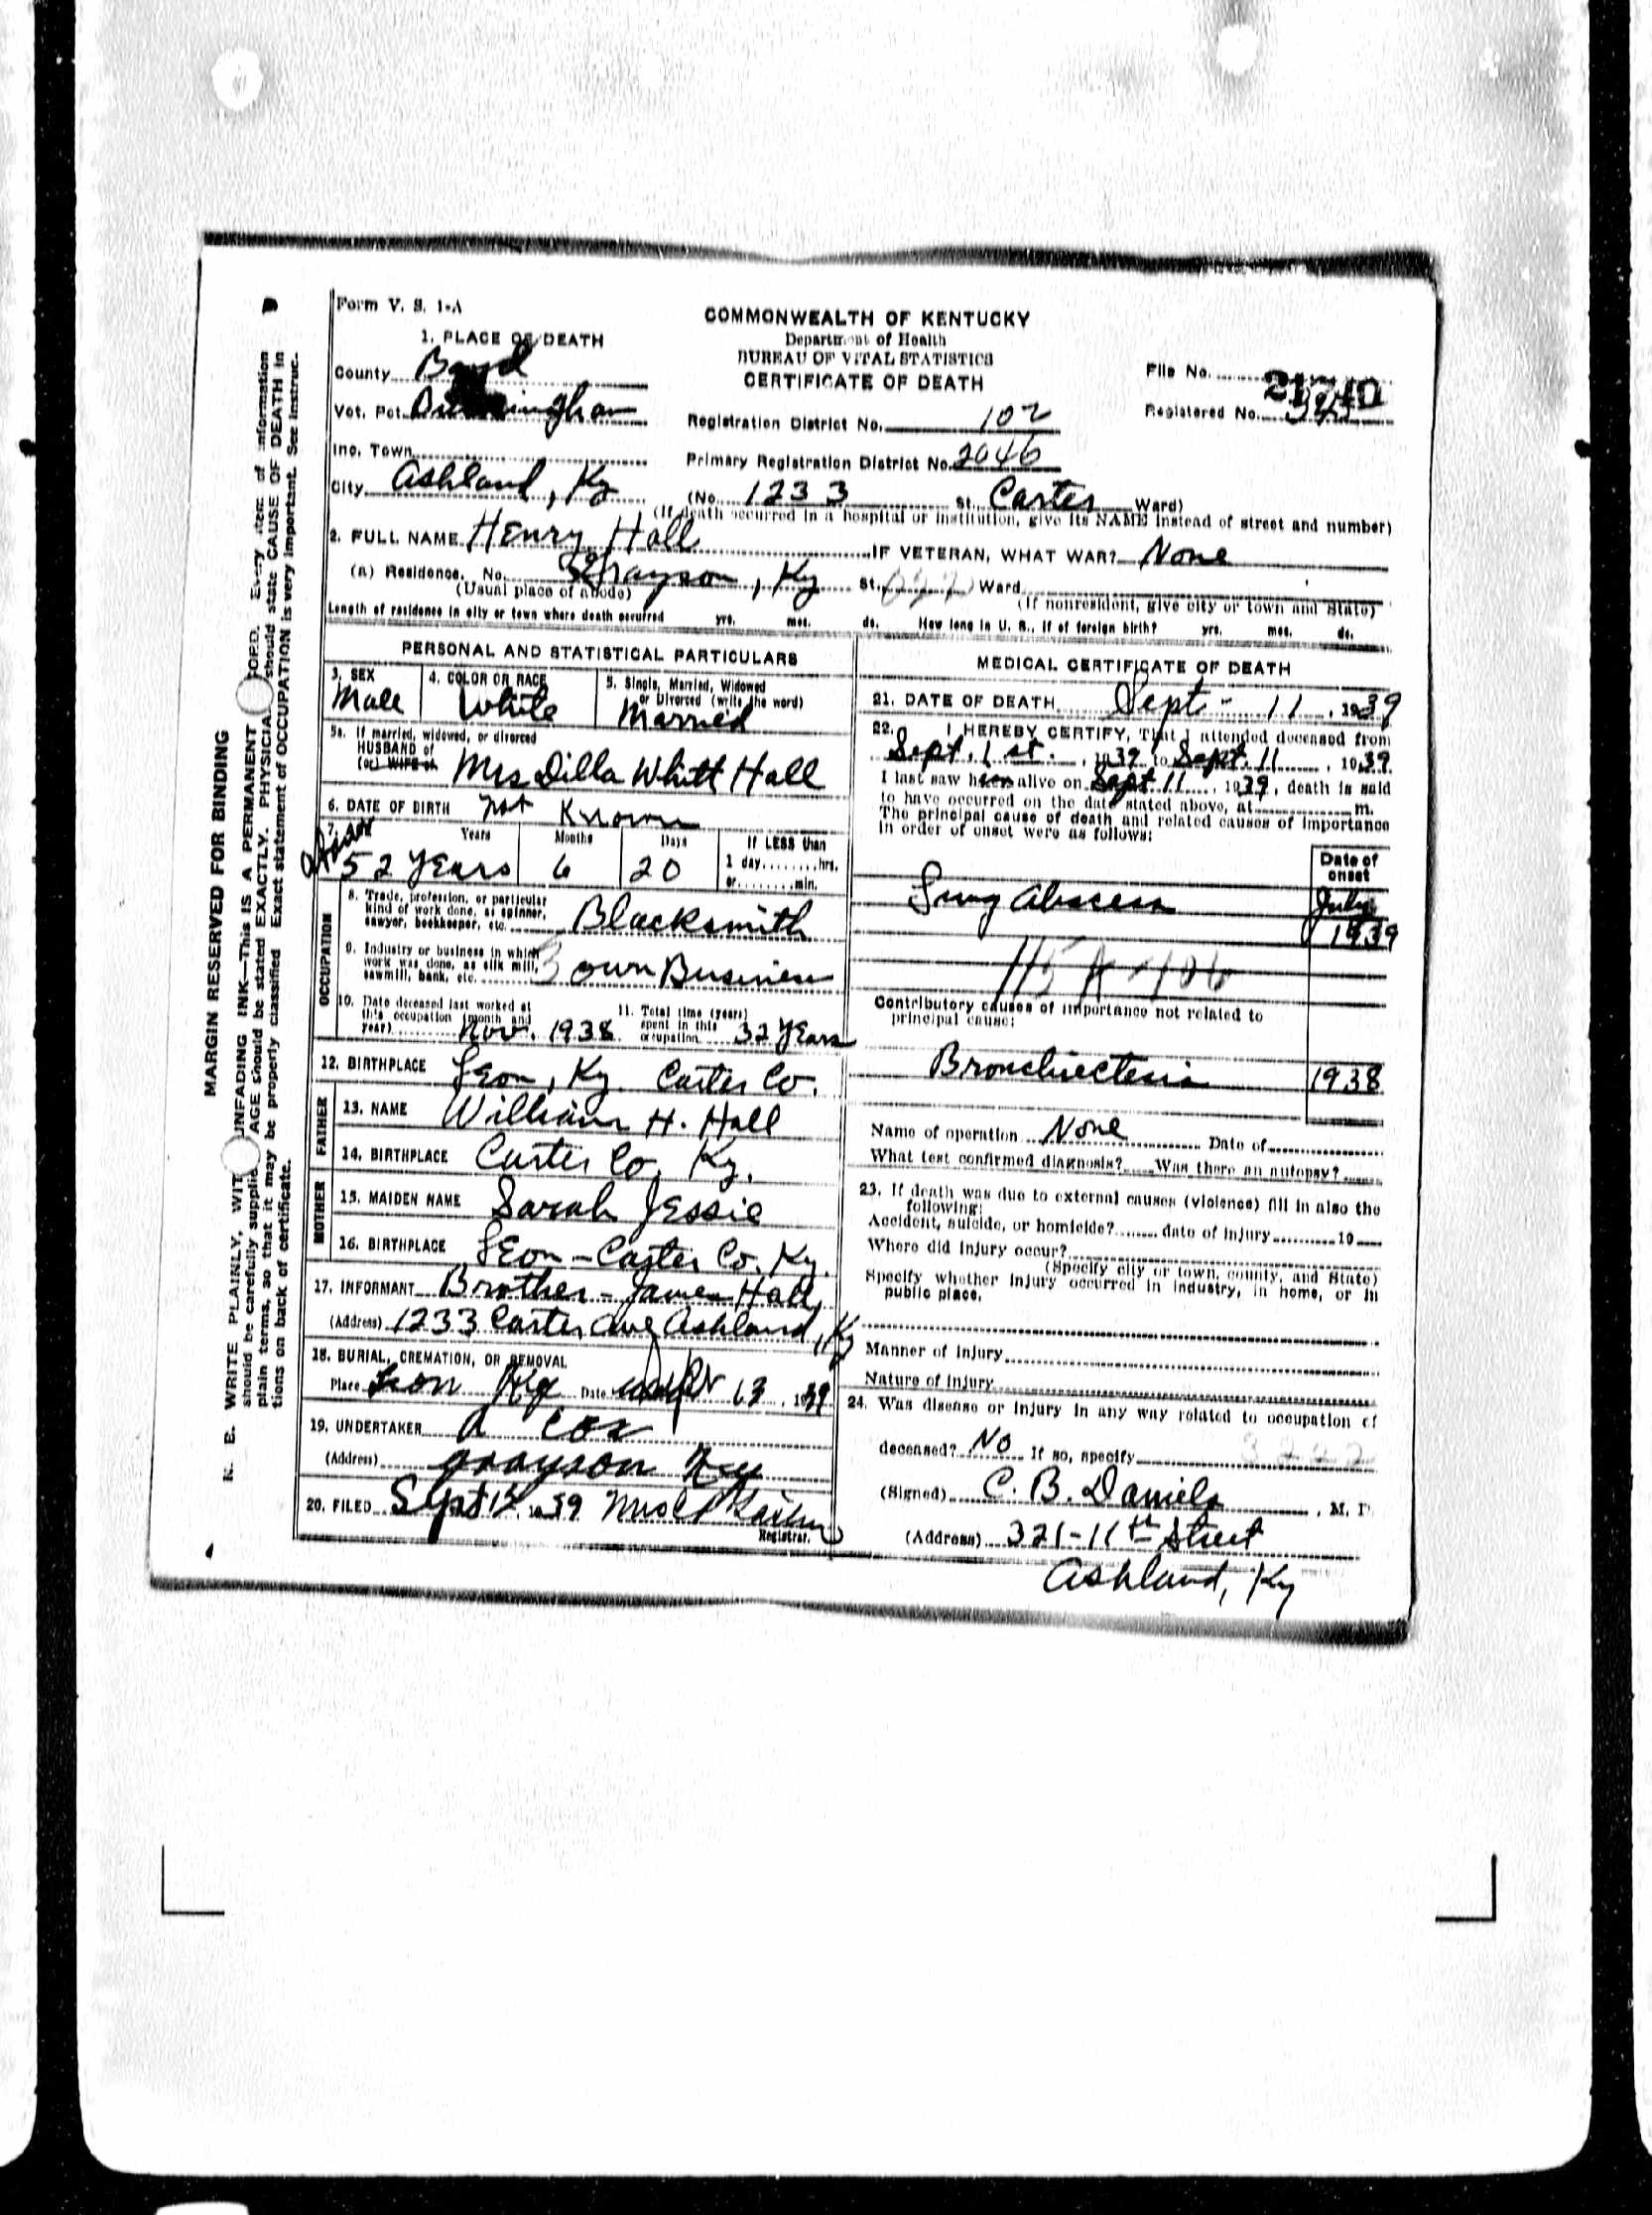 Form V. S. 1-A
COMMONWEALTH OF KENTUCKY
Department of Health
BUREAU OF VITAL STATISTICS
CERTIFICATE OF DEATH
1. PLACE OF DEATH
County Boyd
Vot. Pct.
Inc. Town
City Ashland, Ky
File No. 21740
Registered No.
Registration District No. 102
Primary Registration District No. 2046
(No. 1233 St. Carter Ward)
(If death occurred in a hospital or institution, give its NAME instead of street and number)
2. FULL NAME Henry Hall IF VETERAN, WHAT WAR? None
(a) Residence. No. Grayson, Ky St. Ward
(Usual place of abode) (If nonresident, give city or town and State)
Length of residence in city or town where death occurred yrs. mos. ds. How long in U. S., if of foreign birth? yrs. mos. ds.
PERSONAL AND STATISTICAL PARTICULARS
3. SEX Male
4. COLOR OR RACE White
5. Single, Married, Widowed or Divorced (write the word) Married
5a. If married, widowed, or divorced
HUSBAND of
(or) WIFE of Mrs Dilla Whitt Hall
6. DATE OF BIRTH Not Known
7. AGE Years Months Days If LESS than
52 Years 6 20 1 day ........hrs.
or........min.
OCCUPATION
8. Trade, profession, or particular kind of work done, as spinner, sawyer, bookkeeper, etc. Blacksmith
9. Industry or business in which work was done, as silk mill, sawmill, bank, etc. own Business
10. Date deceased last worked at this occupation (month and year) Nov. 1938
11. Total time (years) spent in this occupation 32 Years
12. BIRTHPLACE Leon, Ky. Carter Co.
FATHER
13. NAME William H. Hall
14. BIRTHPLACE Carter Co, Ky.
MOTHER
15. MAIDEN NAME Sarah Jessie
16. BIRTHPLACE Leon - Carter Co. Ky.
17. INFORMANT Brother - James Hall,
(Address) 1233 Carter Ave Ashland, Ky
18. BURIAL, CREMATION, OR REMOVAL
Place Leon Ky Date 13, 1939
19. UNDERTAKER A Cox
(Address) Grayson Ky
20. FILED Sept 1939
Registrar.
MEDICAL CERTIFICATE OF DEATH
21. DATE OF DEATH Sept - 11, 1939
22. I HEREBY CERTIFY, That I attended deceased from
Sept. 1st., 1939 to Sept. 11, 1939
I last saw him alive on Sept 11, 1939, death is said
to have occurred on the date stated above, at m.
The principal cause of death and related causes of importance
in order of onset were as follows:
Date of onset
Lung Abscess July 1939
Contributory causes of importance not related to
principal cause:
Bronchiectasis 1938
Name of operation None Date of
What test confirmed diagnosis? Was there an autopsy?
23. If death was due to external causes (violence) fill in also the
following:
Accident, suicide, or homicide? date of injury 19
Where did injury occur?
(Specify city or town, county, and State)
Specify whether injury occurred in industry, in home, or in
public place.
Manner of Injury
Nature of Injury
24. Was disease or injury in any way related to occupation of
deceased? No If so, specify
(Signed) C. B. Daniels, M. D.
(Address) 321-11th Street
Ashland, Ky
MARGIN RESERVED FOR BINDING
N. B. WRITE PLAINLY, WITH UNFADING INK—This IS A PERMANENT RECORD. Every item of information
should be carefully supplied. AGE should be stated EXACTLY. PHYSICIANS should state CAUSE OF DEATH in
plain terms, so that it may be properly classified. Exact statement of OCCUPATION is very important. See instruc-
tions on back of certificate.